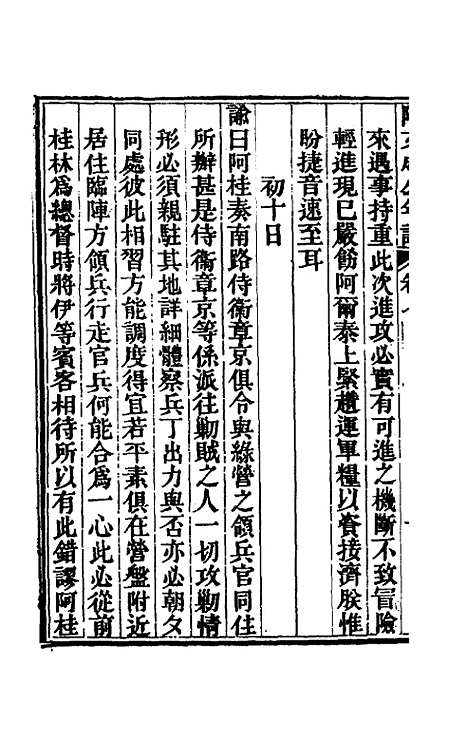 來遇事持重此次進攻必實有可進之機斷不致冒險
輕進現已嚴飭阿爾泰上緊趲運軍糧以資接濟朕惟
盼捷音速至耳
初十日
諭曰阿桂奏南路侍衞章京俱令與綠營之領兵官同住
所辦甚是侍衞章京等係派往勦賊之人一切攻勦情
形必須親駐其地詳細體察兵丁出力與否亦必朝夕
同處彼此相習方能調度得宜若平素俱在營盤附近
居住臨陣方領兵行走官兵何能合爲一心此必從前
桂林爲總督時將伊等賓客相待所以有此錯謬阿桂